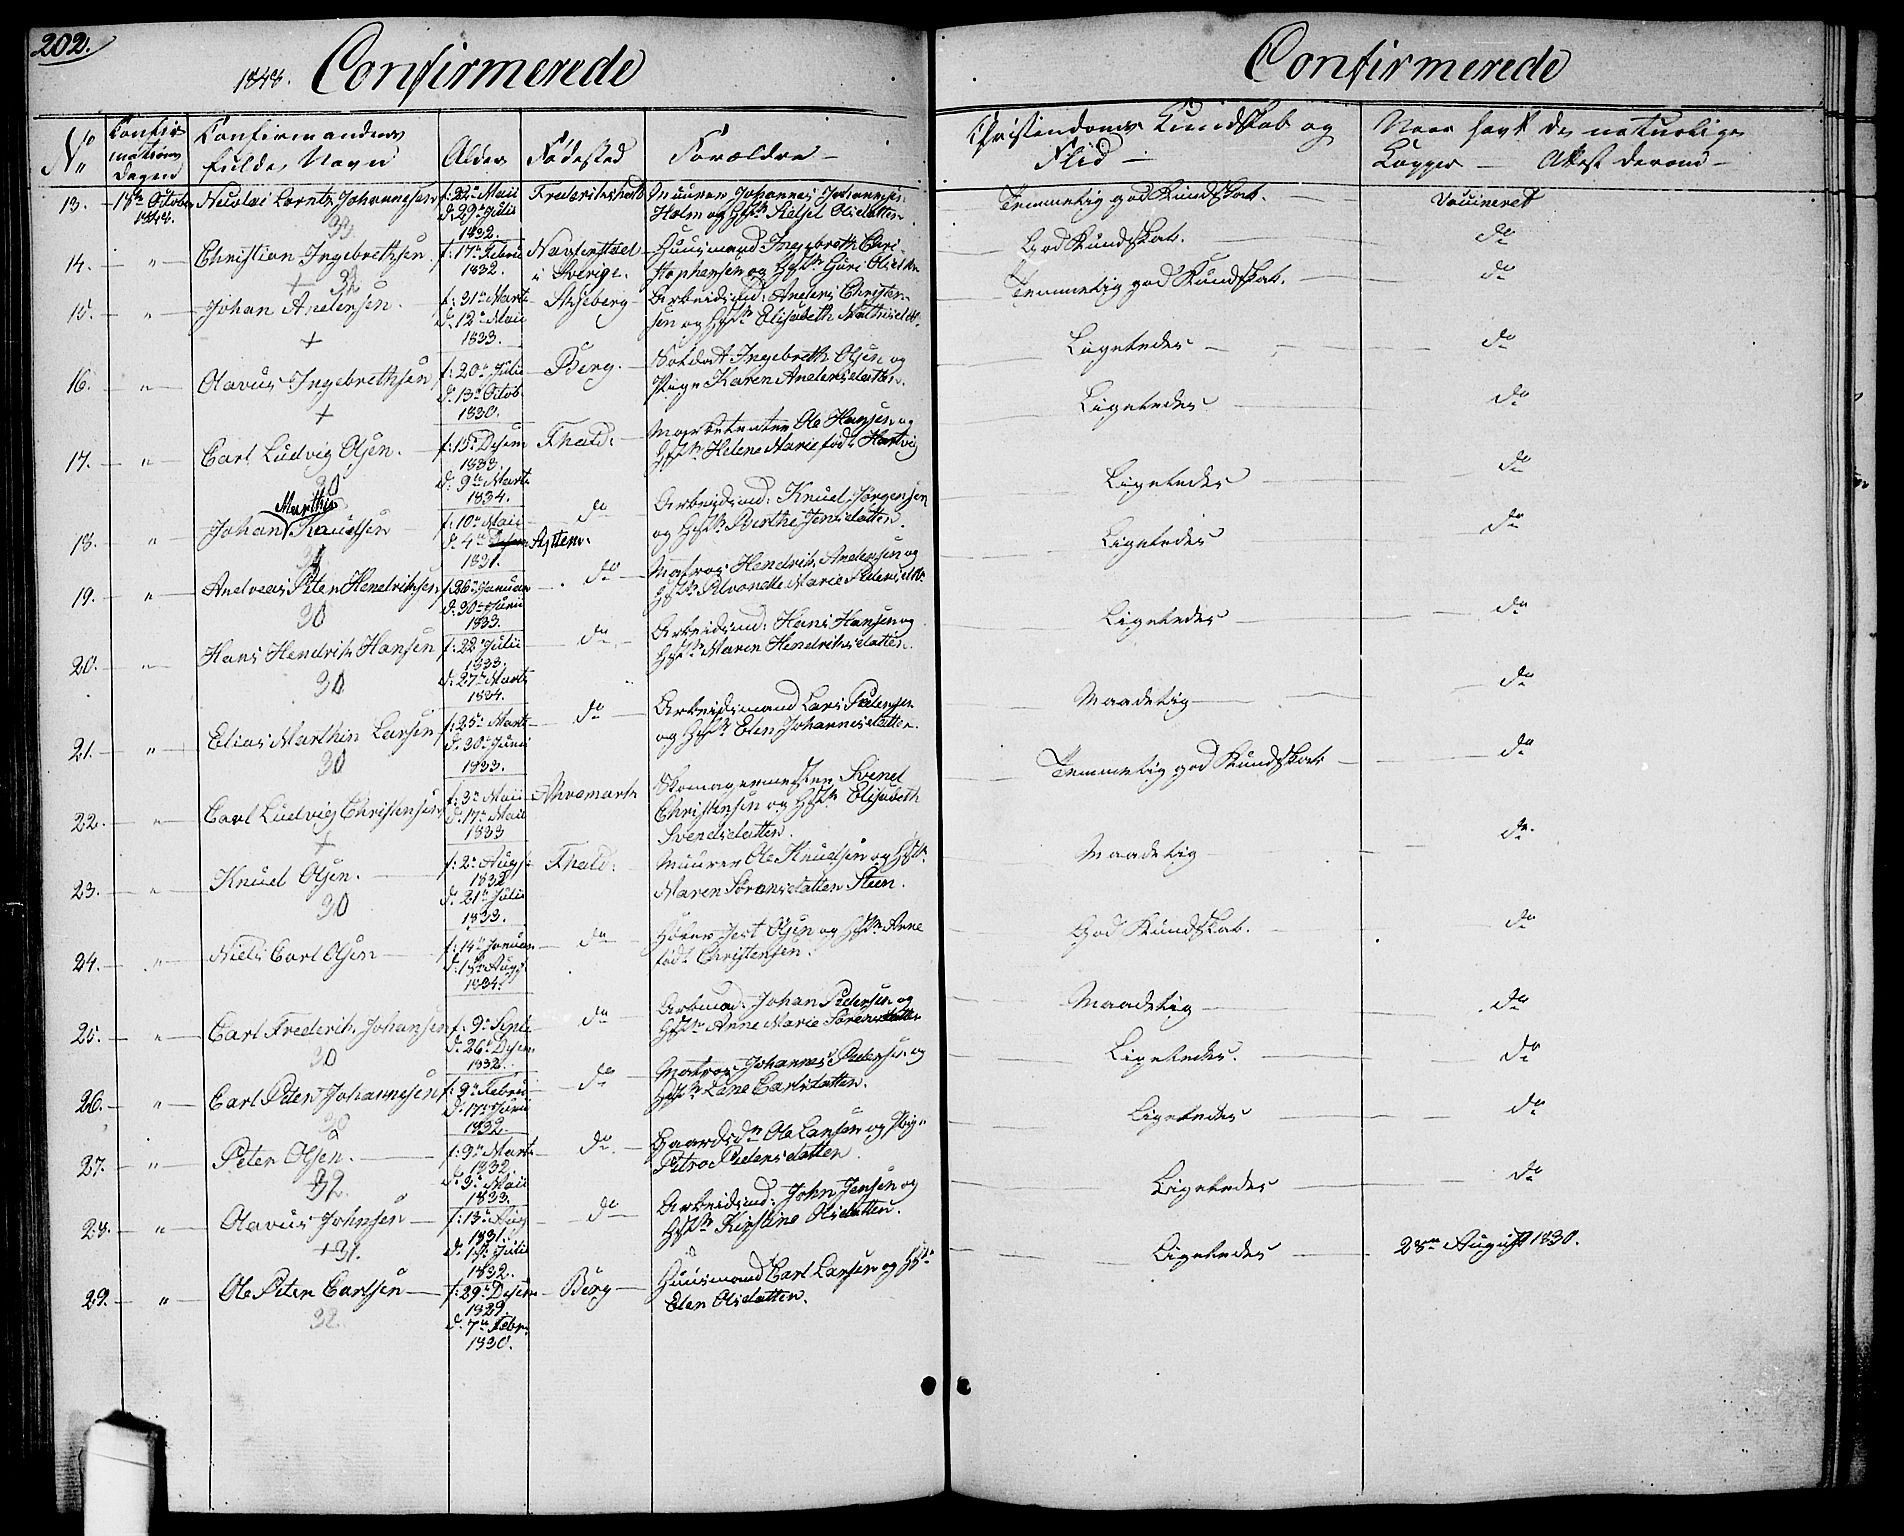 202.
1848. Confirmerede
Confirmerede
No Confirmations Dagen Confirmandens fulde Navn Alder Fødested Forældre
Christendoms Kundskab og Flid Naar havt de naturlige Kopper Attest derom
13. 18de October 1848. Nicolai Larntz Johannesen f: 22de Maii d: 29de Julii 1832. Frederikshald Muurer Johannes Johannesen Holm og Hustr Kersti Olsdatter Temmelig god Kundskab. Vaccineret
33
14. " Christian Ingebrethsen f: 17de Febru 1832. i Sverige. Huusmand Ingebreth Christophersen og Hustr Guri Olsdtr God Kundskab. do
+ 32
15. " Johan Andersen. f: 31te Marti d: 12te Maii 1833. Skjeberg Arbeidsmd: Anders Christensen og Hustr Elisabeth Mathisdtr. Temmelig god Kundskab. do
+
16. " Olavus Ingebrethsen f: 20de Julii d: 13de Octob. 1830. Berg. Soldat Ingebreth Olsen og Pige Karen Andersdatter. Ligeledes do
+
17. " Carl Ludvig Olsen. f: 15de Desem 1833. d: 9de Marti 1834. Fhald: Marketenter Ole Hansen og Hustr Helene Marie født Hartvig Ligeledes do
30
18. " Johan Marthin Knudsen f: 10de Maii d: 4de Desem Septem. 1831. do Arbeidsmd: Knud Jørgensen og Hustr Berthe Jensdatter. Ligeledes do
19. " Andreas Peter Hendriksen f: 26de Januar d: 30te Junii 1833. do Matros Hendrik Andersen og Hustr Petronelle Marie Pedersdtr Ligeledes do
30
20. " Hans Hendrik Hansen f: 22de Julii 1833. d: 27de Marti 1834. do Arbeidsmd: Hans Hansen og Hustr Maren Hendriksdatter. Ligeledes do
30
21. " Elias Marthin Larsen f: 25de Marti d: 30te Junii 1833. do Arbeidsmand Lars Pedersen og Hustr Elen Johannesdatter. Maadelig do
30
22. " Carl Ludvig Christensen f: 3de Maii d: 17de Maii 1833 Ahremark Skomagermester Svend Christensen og Hustr Elisabeth Svendsdatter. Temmelig god Kundskab do
+
23. " Knud Olsen. f: 2de Augs. 1832 d: 21de Julii 1833. Fhald: Muurer Ole Knudsen og Hustr Maren Sørensdatter Steen. Maadelig do
30
24. " Niels Carl Olsen f: 14de Januar d: Augs. 1834. do Jost Olsen og Hustr Anne født Christensen. God Kundskab. do
25. " Carl Frederik Johansen f: 9de Septe d: 26de Desem 1832. do Arbmd: Johan Pedersen og Hustr Anne Marie Sørensdatter Maadelig do
30
26. " Carl Peter Johannesen f: 9de Febru d: 17de Junii 1832. do Matros Johannes Pedersen og Hustr Lene Carlsdatter. Ligeledes. do
30
27. " Peter Olsen. f: 9de Marti 1832. d: 3de Maii 1833. do Gaardsdr Ole Larsen og Pige Petroe Pedersdatter. Ligeledes do
32.
28. " Olavus Johnsen f: 13de Aug 1831. d: Julii 1832. do Arbeidsmd: John Jensen og Hustr Kirstine Olsdatter. Ligeledes do
+31.
29. " Ole Peter Carlsen f: 29de Desem 1829 d: 7de Febr. 1830. Berg Huusmand Carl Larsen og Hustr Elen Olsdatter. Ligeledes 28de August 1830.
32.